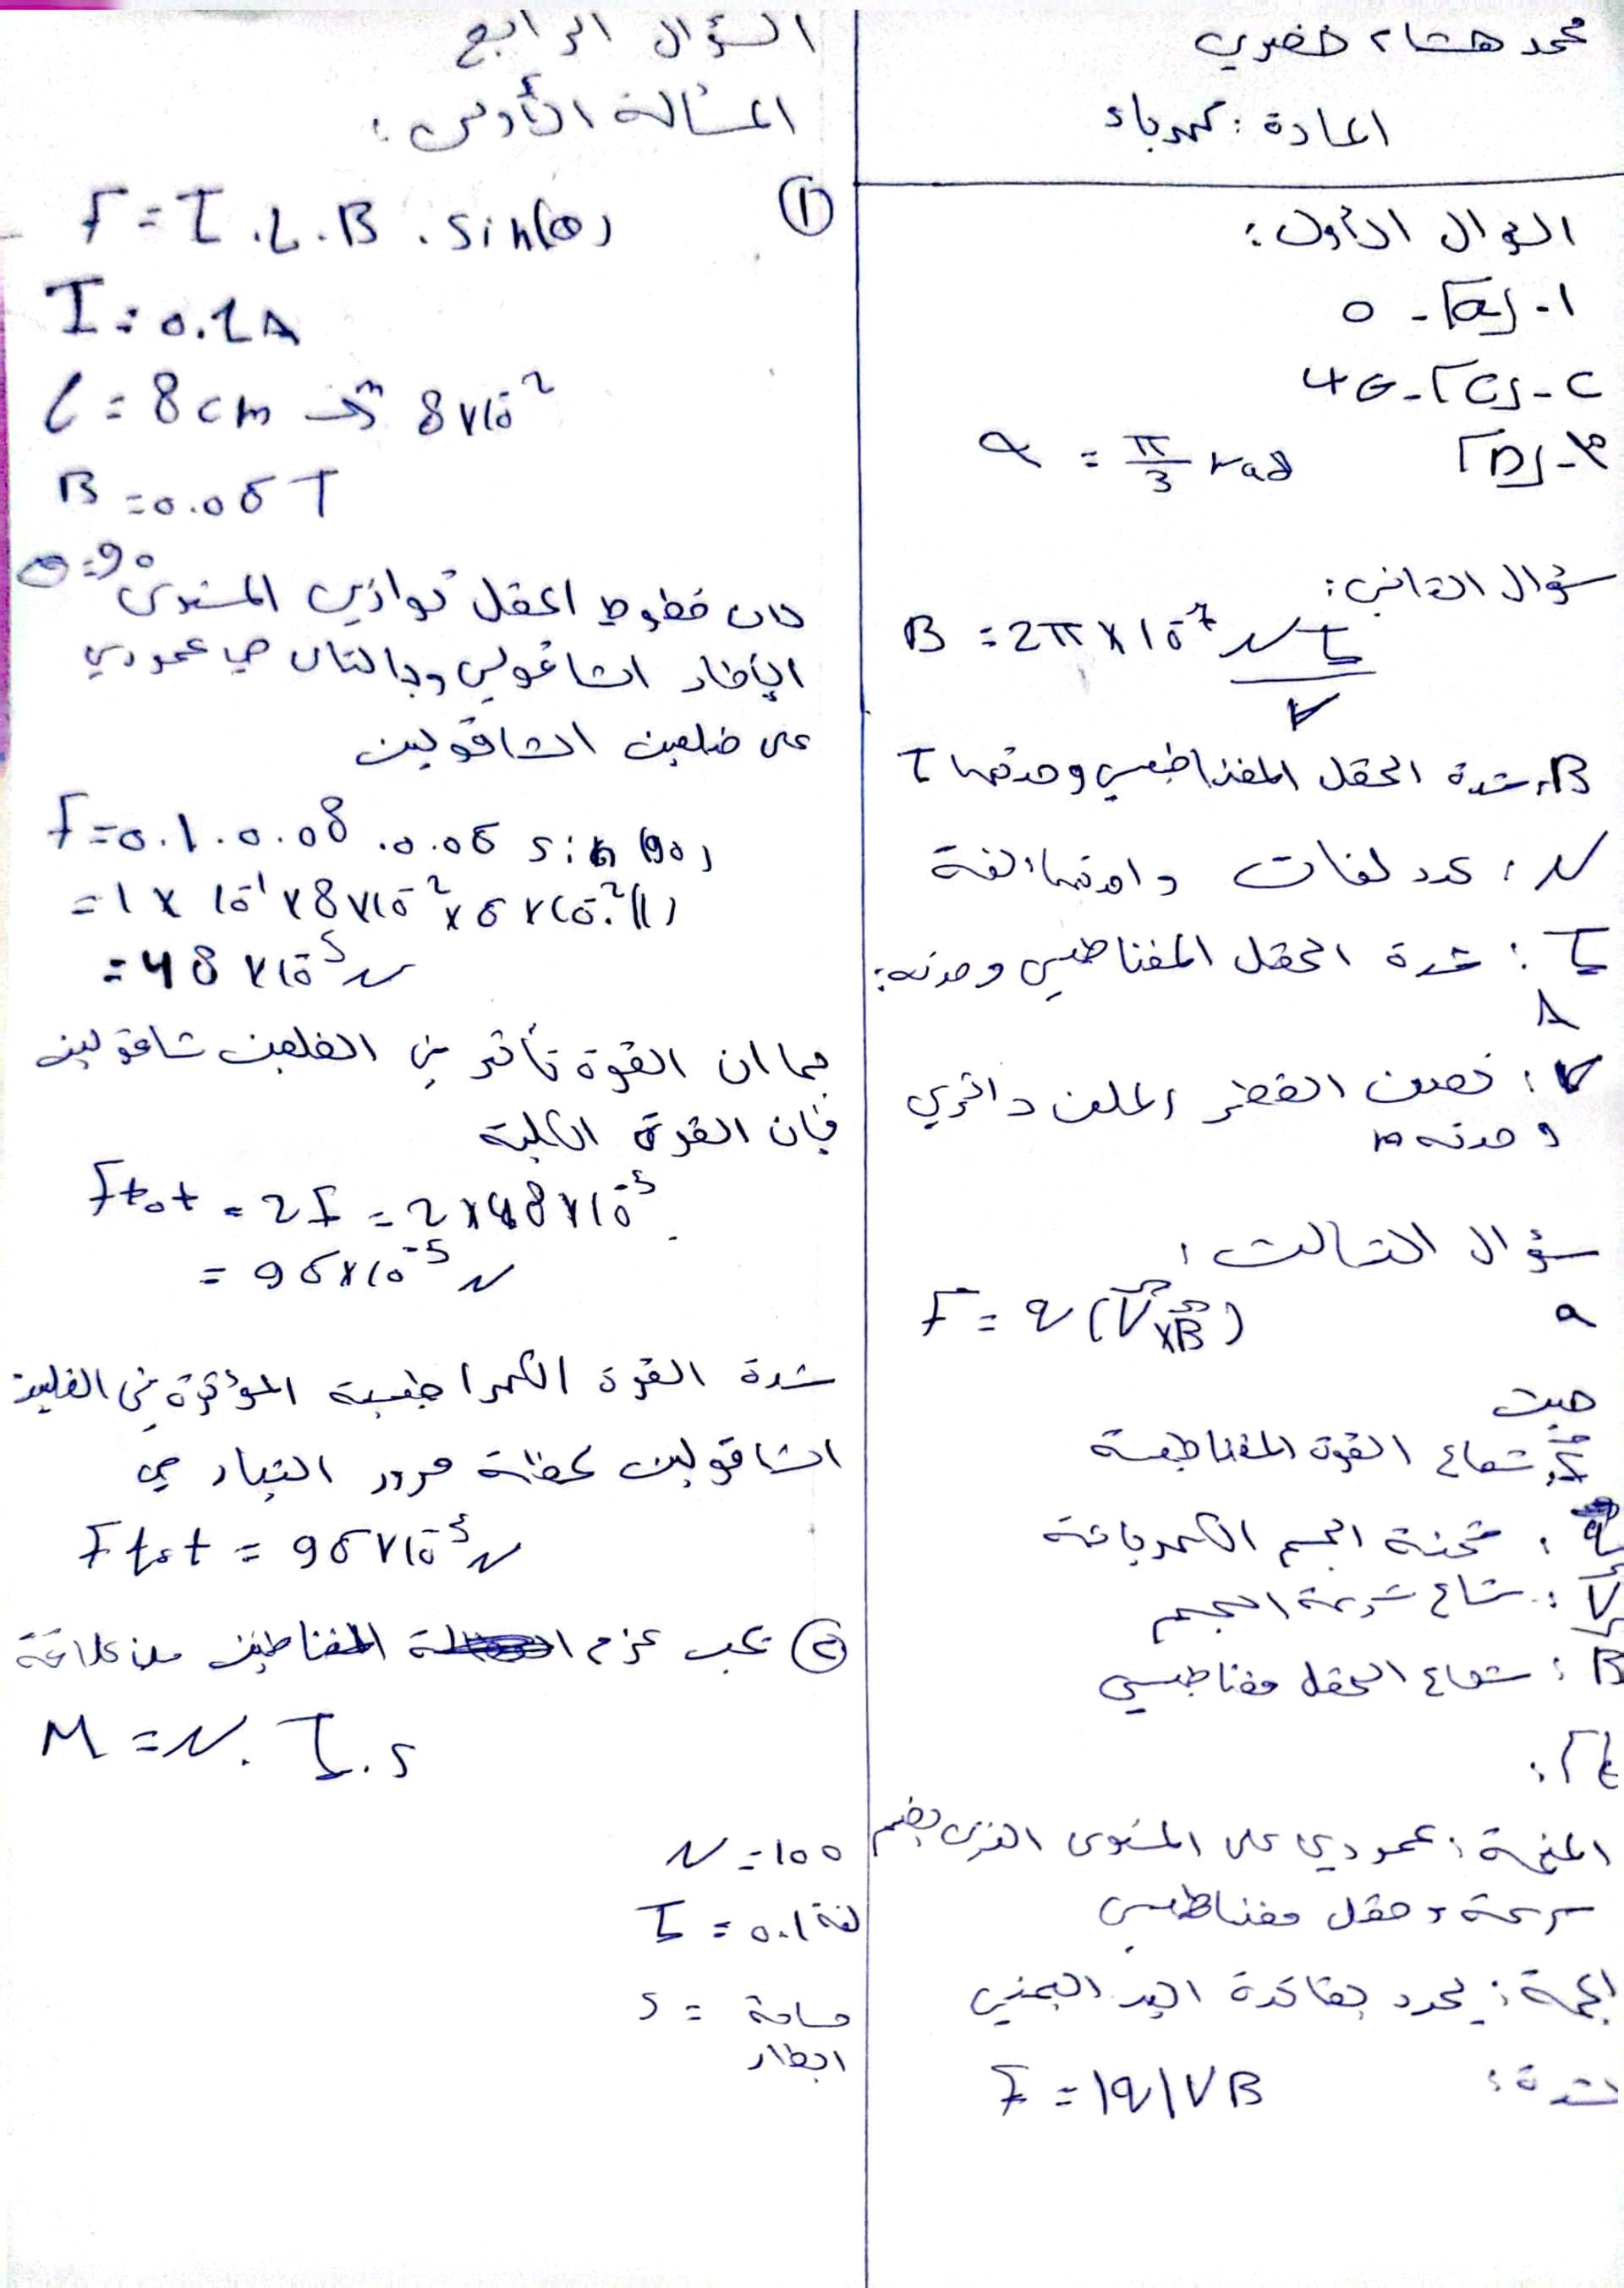 محمد هشام خضري
المادة: كهرباء
السؤال الأول:
1- [a] - 0
2- [c] - 4G
3- [D] α = π/3 rad
سؤال الثاني:
B = 2π × 10^-7 NI/r
B: شدة الحقل المغناطيسي وحدتها T
N: عدد لفات واحدتها لفة
I: شدة الحقل المغناطيسي وحدته:
A
r: نصف القطر الملف دائري
وحدته m
سؤال الثالث:
a F = q(V×B)
حيث
F: شعاع القوة المغناطيسية
q: شحنة الجسم الكهربائية
V: شعاع سرعة الجسم
B: شعاع الحقل مغناطيسي
الحامل: عمودي على المستوى الذي يضم
سرعة و حقل مغناطيسي
الجهة: يحدد بقاعدة اليد اليمنى
شدة: F = |q|VB
السؤال الرابع
المسألة الأولى:
① F = I.L.B.sin(θ)
I = 0.1A
L = 8cm → 8×10^-2
B = 0.06T
θ=90
خطوط الحقل توازي المستوى
الإطار الشاقولي وبالتالي هي عمودي
على ضلعين الشاقولين
F = 0.1 . 0.08 . 0.06 sin(90)
= 1 × 10^-1 × 8×10^-2 × 6×10^-2 (1)
= 48×10^-5 N
بما ان القوة تأثر في الضلعين شاقولين
فإن القوة الكلية
Ftot = 2F = 2×48×10^-5
= 96×10^-5 N
شدة القوة الكهراطيسية المؤثرة في الضلعين
الشاقولين لحظة مرور التيار هي
Ftot = 96×10^-5 N
② نحسب عزم المغناطيسي من علاقة
M = N.I.s
N = 100 لفة
I = 0.1
s = مساحة
إطار